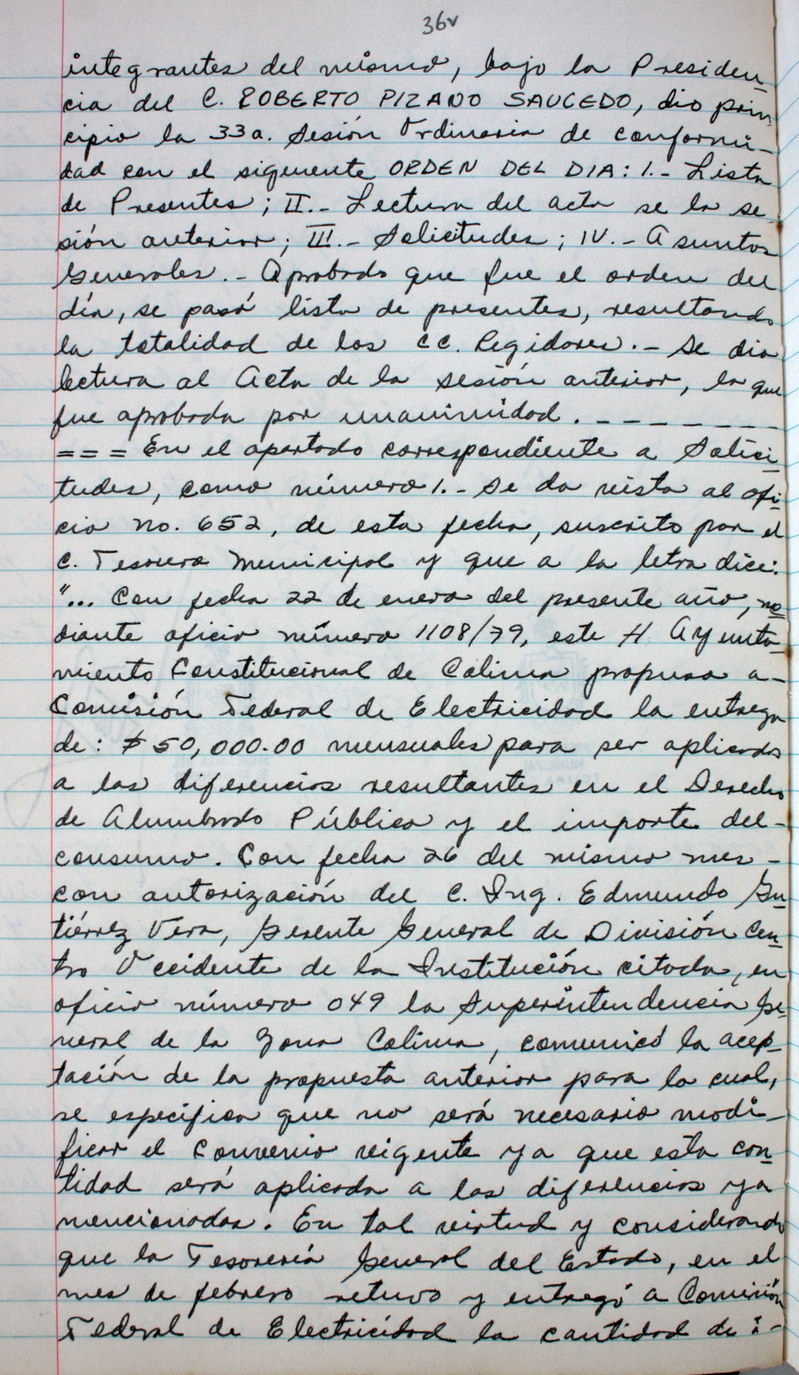 36v
integrantes del mismo, bajo la Presiden
cia del C. ROBERTO PIZANO SAUCEDO, dio prin
cipio la 33a. Sesión Ordinaria de conformi-
dad con el siguiente ORDEN DEL DIA: I.- Lista
de Presentes; II.- Lectura del acta se la se
sión anterior; III.- Solicitudes; IV.- Asuntos
Generales.- Aprobado que fue el orden del
día, se pasó lista de presentes, resultando
la totalidad de los CC. Regidores.- Se dio
lectura al Acta de la sesión anterior, la que
fue aprobada por unanimidad. - - - - - - -
= = = En el apartado correspondiente a Solici
tudes, como número 1.- Se da vista al ofi
cio no. 652, de esta fecha, suscrito por el
C. Tesorero Municipal y que a la letra dice:
"... Con fecha 22 de enero del presente año, me
diante oficio número 1108/79, este H Ayunta-
miento Constitucional de Colima propuso a-
Comisión Federal de Electricidad la entrega
de: $50,000.00 mensuales para ser aplicados
a las diferencias resultantes en el Derecho
de Alumbrado Público y el importe del-
consumo. Con fecha 26 del mismo mes-
con autorización del C. Ing. Edmundo Gu
tiérrez Vera, Gerente General de División Cen
tro Occidente de la Institución citada, en
oficio número 049 la Superintendencia Ge
neral de la Zona Colima, comunicó la acep-
tación de la propuesta anterior para la cual,
se especifica que no será necesario modi-
ficar el Convenio vigente ya que esta can
tidad será aplicada a las diferencias ya
mencionadas. En tal virtud y considerando
que la Tesorería General del Estado, en el
mes de febrero retuvo y entregó a Comisión
Federal de Electricidad la cantidad de :-